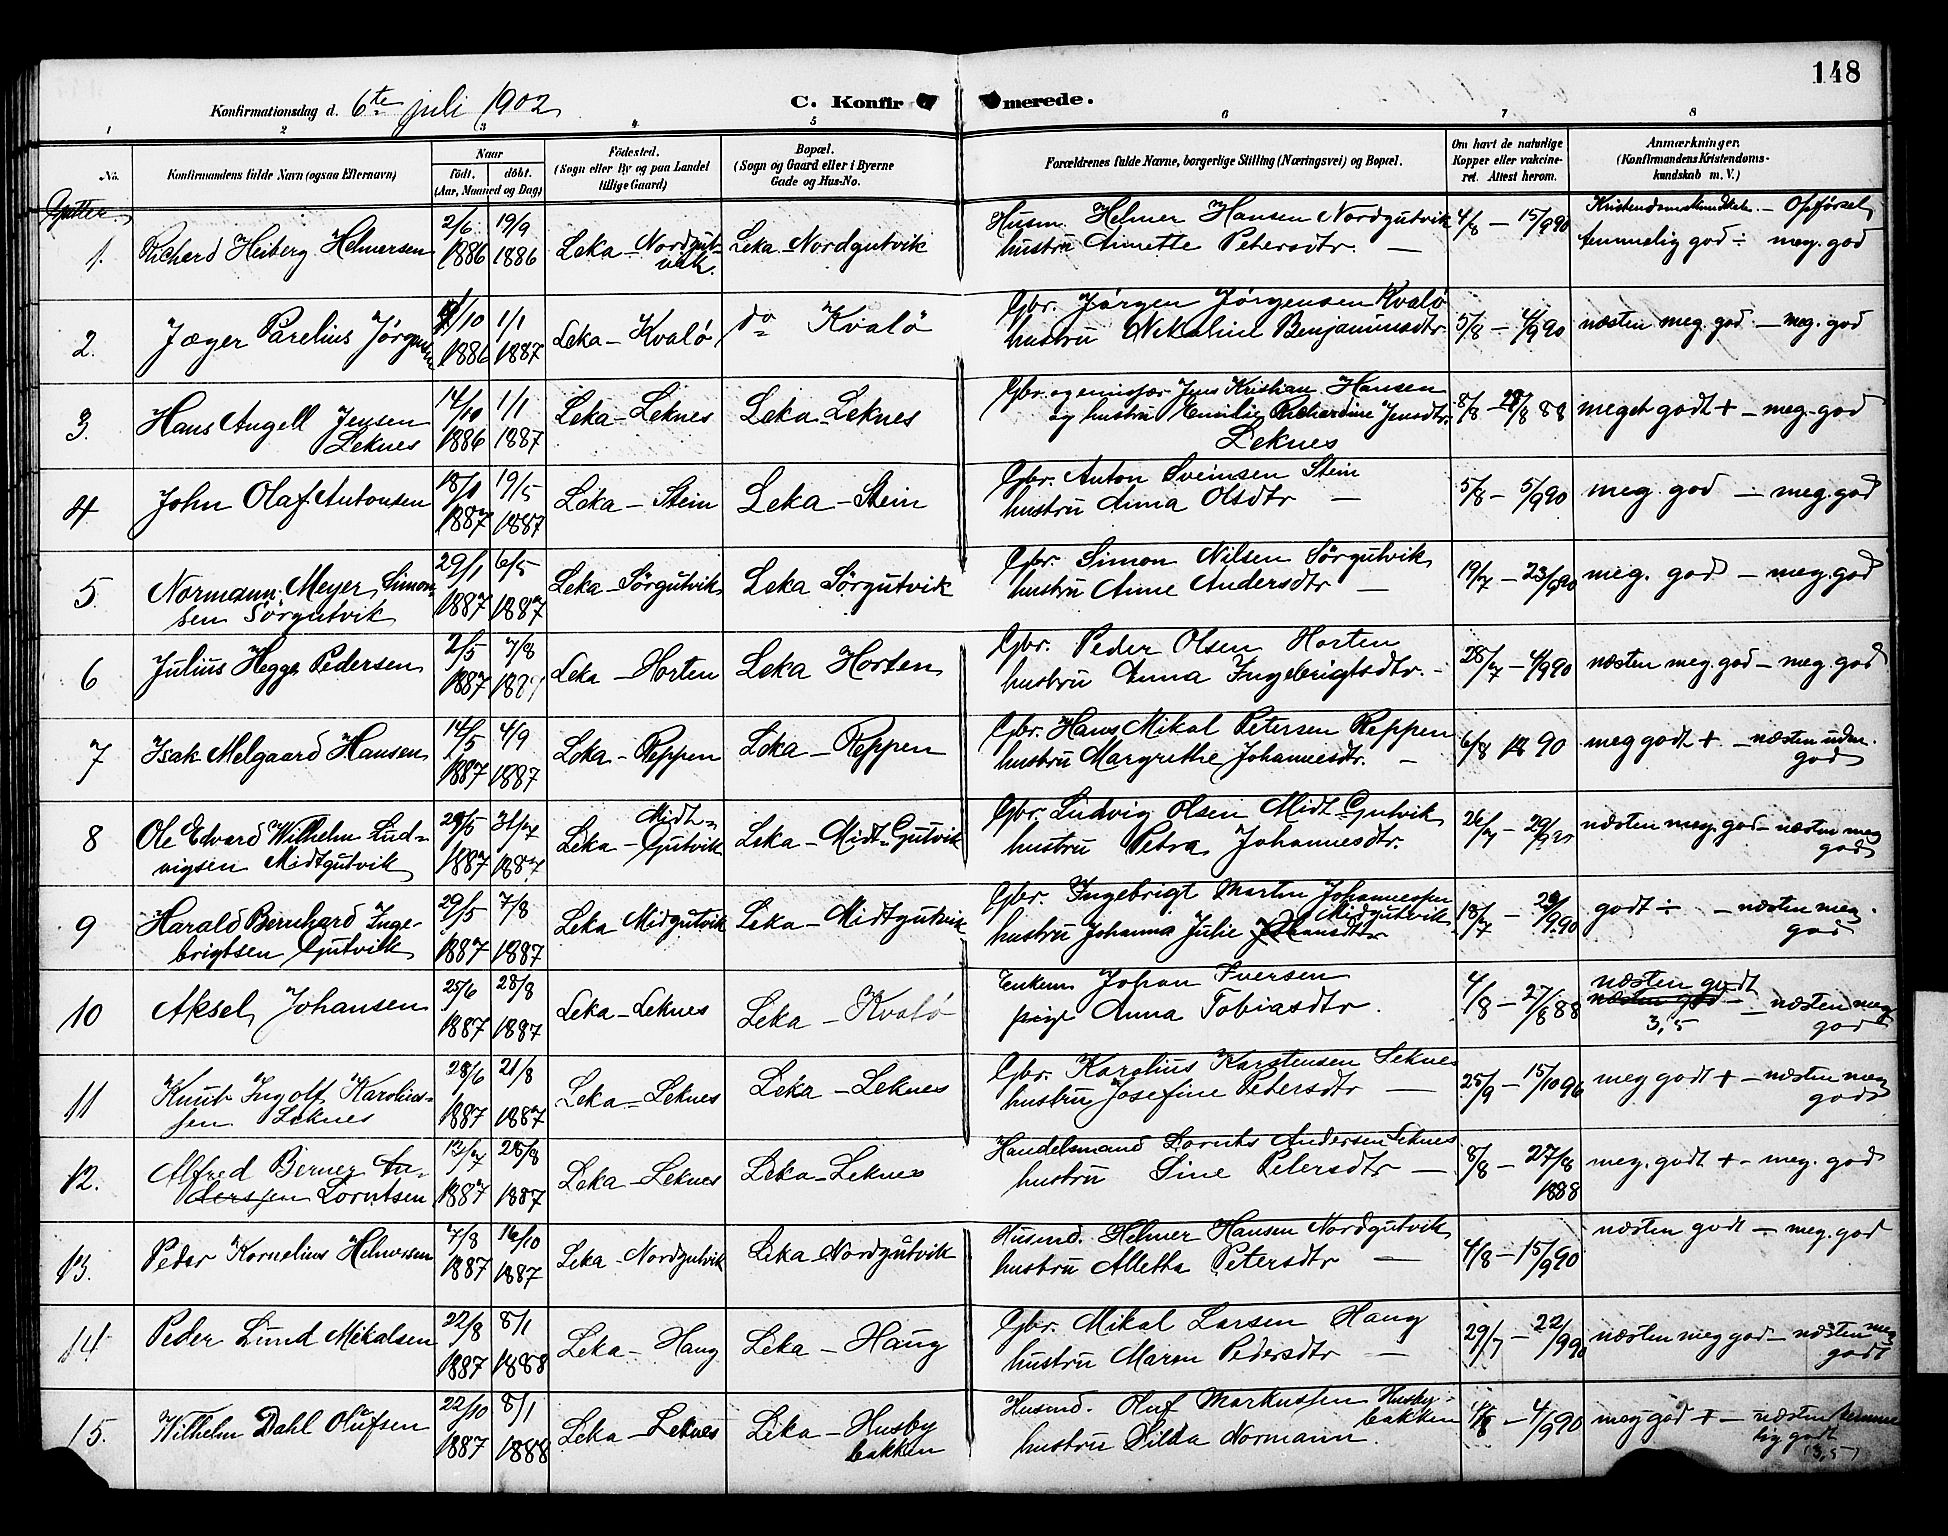 148
Konfirmationsdag d. 6te juli 1902
C. Konfirmerede.
1 2 3 4 5 6 7 8
No.
Konfirmandens fulde Navn (ogsaa Efternavn)
Naar
født. døbt.
(Aar, Maaned og Dag)
Fødested.
(Sogn eller By og paa Landet
tillige Gaard)
Bopæl.
(Sogn og Gaard eller i Byerne
Gade og Hus-No.
Forældrenes fulde Navne, borgerlige Stilling (Næringsvei) og Bopæl.
Om havt de naturlige
Kopper eller vakcine-
ret. Attest herom.
Anmærkninger.
(Konfirmandens Kristendoms-
kundskab m. V.)
Gutter.
Kristendomskundskab. - Opførsel
1. Richard Heiberg Helmersen 2/6 1886 19/9 1886 Leka - Nordgut-
vik. Leka Nordgutvik Husm. Helmer Hansen Nordgutvik 4/8 - 15/9 90 temmelig god ÷ meg. god
hustru Annette Petersdtr. -
2. Jæger Parelius Jørgensen /10 1886 1/1 1887 Leka - Kvalø do Kvalø Gbr. Jørgen Jørgensen Kvalø 5/8 - 4/9 90 næsten meg. god - meg. god
hustru Nikoline Benjaminsdtr.
3. Hans Angell Jensen 14/10 1886 1/1 1887 Leka - Leknes Leka - Leknes Gbr. og Jens Kristian Hansen 8/8 - 28/8 88 meget godt + - meg. god
Leknes og hustru Emilie Richardine Jensdtr.
Leknes
4 John Olaf Antonsen 18/1 1887 19/5 1887 Leka - Stein Leka - Stein Gbr. Anton Sveinsen Stein 5/8 - 5/9 90 meg. god - meg. god
hustru Anna Olsdtr -
5. Normann Meyer Simon- 29/1 1887 6/5 1887 Leka - Sørgutvik Leka Sørgutvik Gbr. Simon Nilsen Sørgutvik 19/7 - 23/9 90 meg. god - meg. god
sen Sørgutvik hustru Anne Andersdtr -
6 Julius Hegge Pedersen 2/5 1887 7/8 1887 Leka - Horten Leka Horten Gbr. Peder Olsen Horten 28/7 - 4/9 90 næsten meg. god - meg. god
hustru Anna Ingebrigtsdtr. -
7 Isak Melgaard Hansen 14/5 1887 4/9 1887 Leka - Reppen Leka - Reppen Gbr. Hans Mikal Petersen Reppen 6/8 90 meg godt + - næsten udm.
god
hustru Margrethe Johannesdtr. -
8 Ole Edvard Wilhelm Lud- 29/5 1887 31/7 1887 Leka - Midt-
Gutvik Leka - Midt-Gutvik Gbr. Ludvig Olsen Midt Gutvik 26/7 - 29/9 90 næsten meg. god - næsten meg
god
vigsen Midtgutvik hustru Petra Johannesdtr.
9 Harald Bernhard Inge- 29/5 1887 7/8 1887 Leka Midgutvik Leka - Midtgutvik Gbr. Ingebrigt Martin Johannessen
Midgutvik 18/7 - 29/9 90 godt ÷ - næsten meg.
god
brigtsen Gutvik hustru Johanna Julie
10 Aksel Johansen 25/6 1887 28/8 1887 Leka - Leknes Leka - Kvalø Enkem. Johan Iversen 4/8 - 27/8 88 næsten godt
næsten god - næsten meg
3,5 god
pige Anna Tobiasdtr.
11 Knut Ingolf Karolius- 28/6 1887 21/8 1887 Leka - Leknes Leka - Leknes Gbr. Karolius Karstensen Leknes 25/9 - 15/10 96 meg godt + - næsten meg
god
sen Leknes hustru Josefine Pedersdtr -
12. Alfred Berner An- 12/7 1887 28/8 1887 Leka - Leknes Leka - Leknes Handelsmand Lornts Andersen Leknes 8/8 - 27/8 1888 meg. godt + - meg. god
derssen Lorntsen hustru Sine Petersdtr -
13. Peder Kornelius Helmersen 7/8 1887 16/10 1887 Leka - Nordgutvik Leka Nordgutvik Husmd. Helmer Hansen Nordgutvik 4/8 - 15/9 90 næsten godt - meg. god
hustru Alletha Petersdtr -
14. Peder Lund Mikalsen 22/8 1887 8/1 1888 Leka - Haug Leka - Haug Gbr. Mikal Larsen Haug 29/7 - 22/9 90 næsten meg god - næsten meg
godt
hustru Maren Pedersdtr -
15. Wilhelm Dahl Olufsen 22/10 1887 8/1 1888 Leka - Leknes Leka - Husby
bakken Husmd. Oluf Markussen Husby-
bakken 4/8 - 4/9 90 meg god + - næsten temme
lig godt
3,5
hustru Hilda Normann.